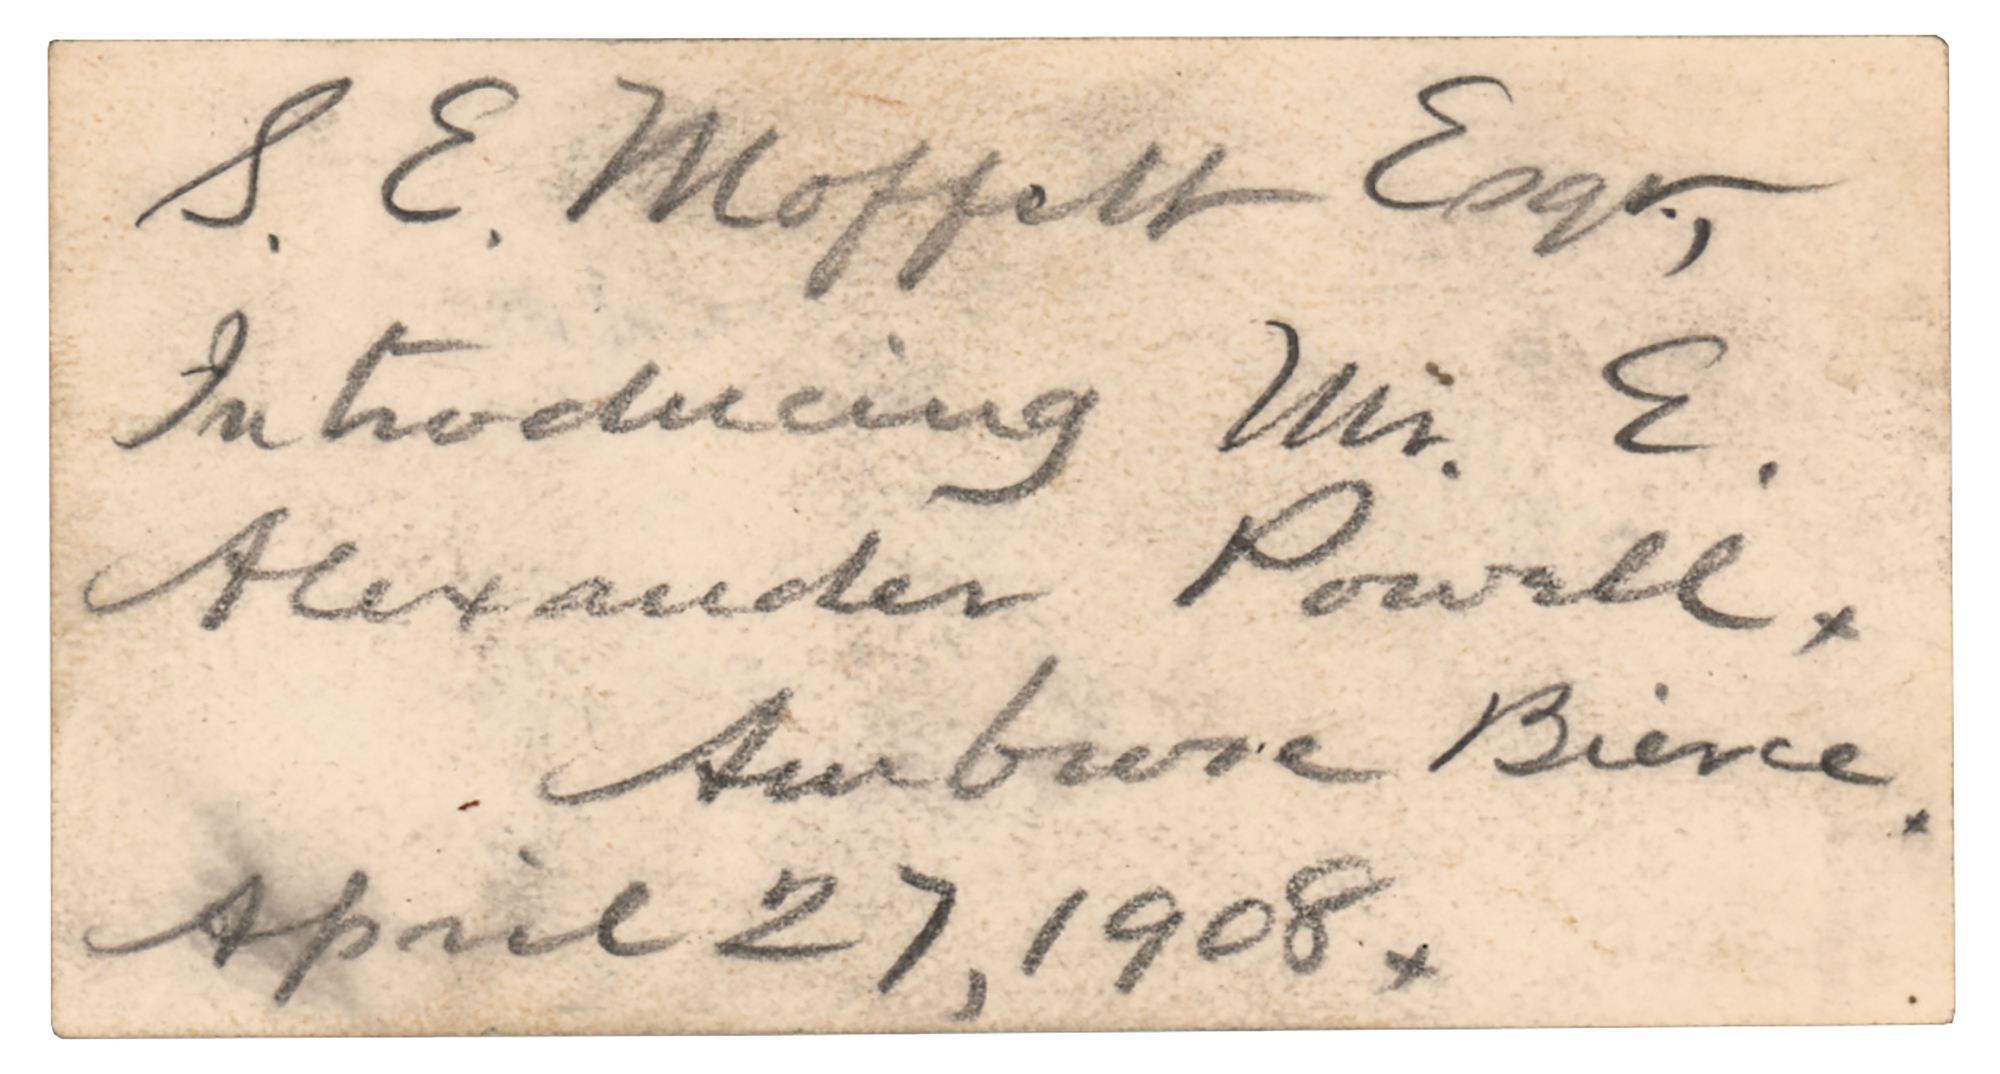 S. E. Moffett Esqr.,
Introducing Mr. E.
Alexander Powell.
Ambrose Bierce.
April 27, 1908.